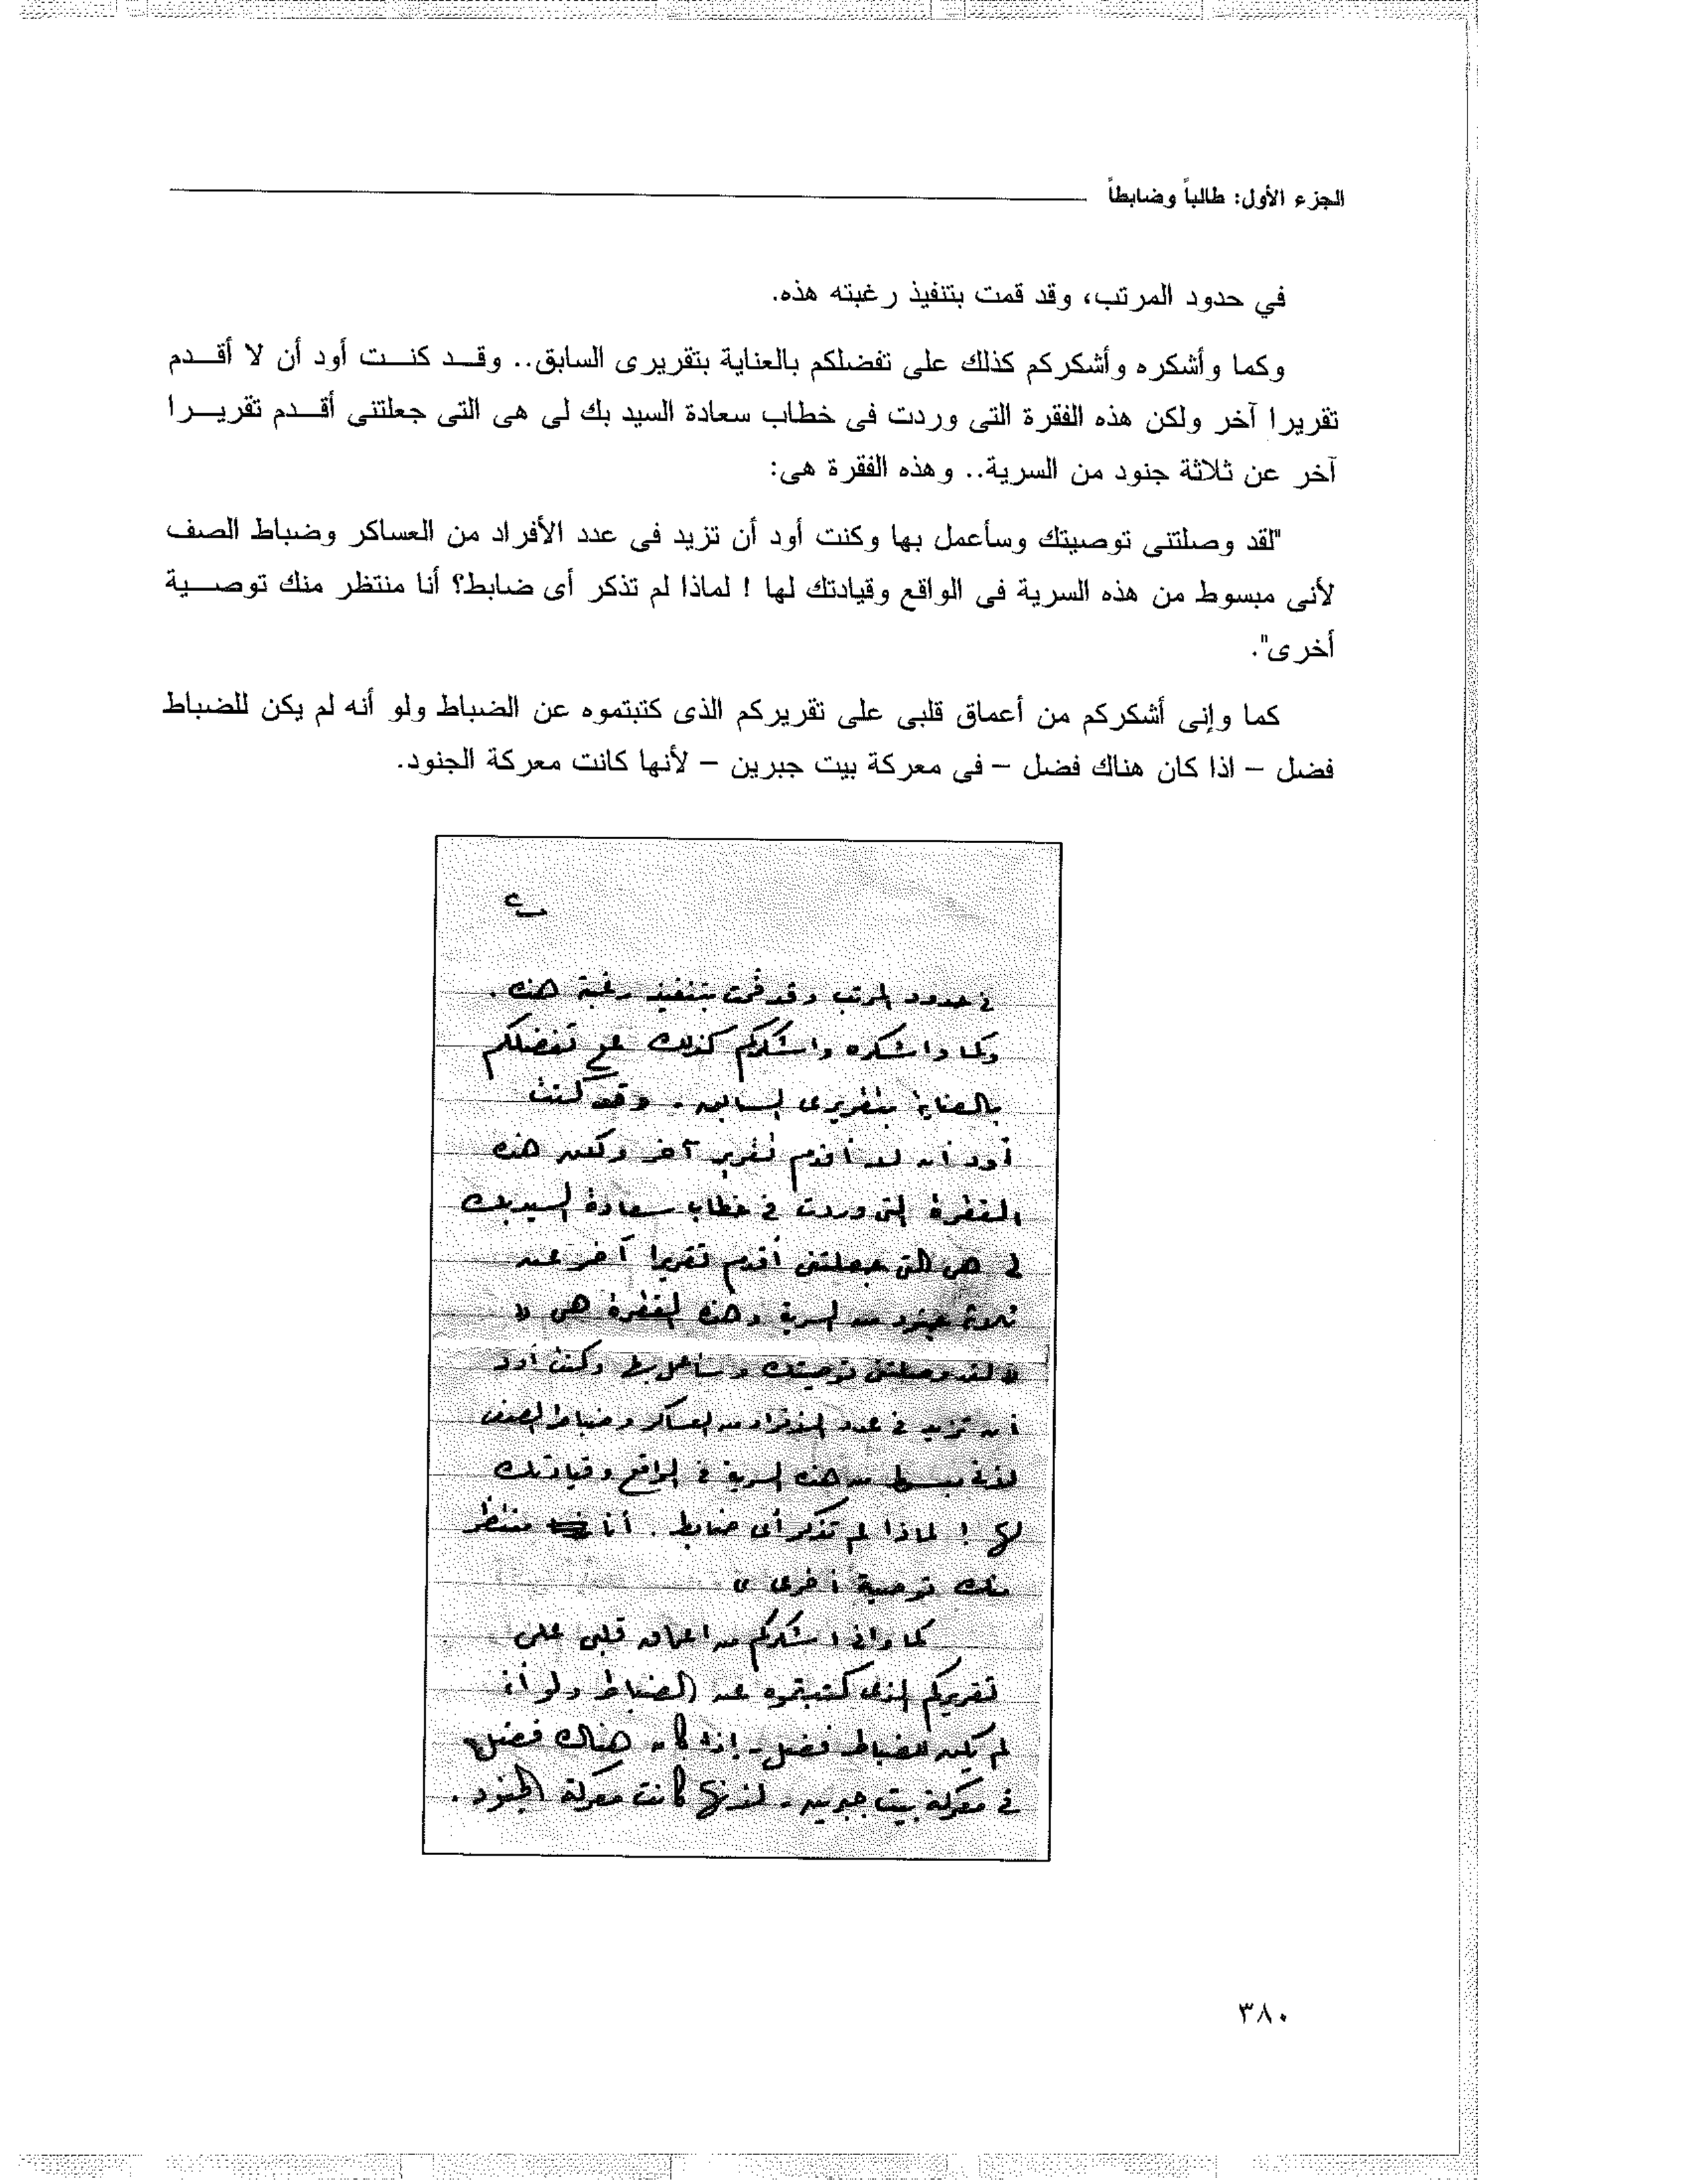 الجزء الأول: طالباً وضابطاً
في حدود المرتب، وقد قمت بتنفيذ رغبته هذه.
وكما وأشكره وأشكركم كذلك على تفضلكم بالعناية بتقريرى السابق.. وقـد كنـت أود أن لا أقـدم
تقريرا آخر ولكن هذه الفقرة التى وردت فى خطاب سعادة السيد بك لى هى التى جعلتنى أقـدم تقريـرا
آخر عن ثلاثة جنود من السرية.. وهذه الفقرة هى:
"لقد وصلتنى توصيتك وسأعمل بها وكنت أود أن تزيد فى عدد الأفراد من العساكر وضباط الصف
لأنى مبسوط من هذه السرية فى الواقع وقيادتك لها ! لماذا لم تذكر أى ضابط؟ أنا منتظر منك توصـية
أخرى".
كما وإنى أشكركم من أعماق قلبى على تقريركم الذى كتبتموه عن الضباط ولو أنه لم يكن للضباط
فضل – اذا كان هناك فضل – فى معركة بيت جبرين – لأنها كانت معركة الجنود.
في حدود المرتب وقد قمت بتنفيذ رغبته هذه .
وكما واشكره واشكركم كذلك على تفضلكم
بالعناية بتقريرى السابق . وقد كنت
أود أن لا أقدم تقرير آخر ولكن هذه
الفقرة التى وردت فى خطاب سعادة السيد بك
لى هى التى جعلتنى أقدم تقريرا آخر عن
ثلاثة جنود من السرية وهذه الفقرة هى "
" لقد وصلتنى توصيتك وسأعمل بها وكنت أود
أن تزيد فى عدد الأفراد من العساكر وضباط الصف
لأنى مبسوط من هذه السرية فى الواقع وقيادتك
لها ! لماذا لم تذكر أى ضابط . أنا منتظر
منك توصية أخرى "
كما وانى اشكركم من اعماق قلبى على
تقريركم الذى كتبتموه عن الضباط ولو أنه
لم يكن للضباط فضل - إذا كان هناك فضل -
فى معركة بيت جبرين - لأنها كانت معركة الجنود .
٣٨٠